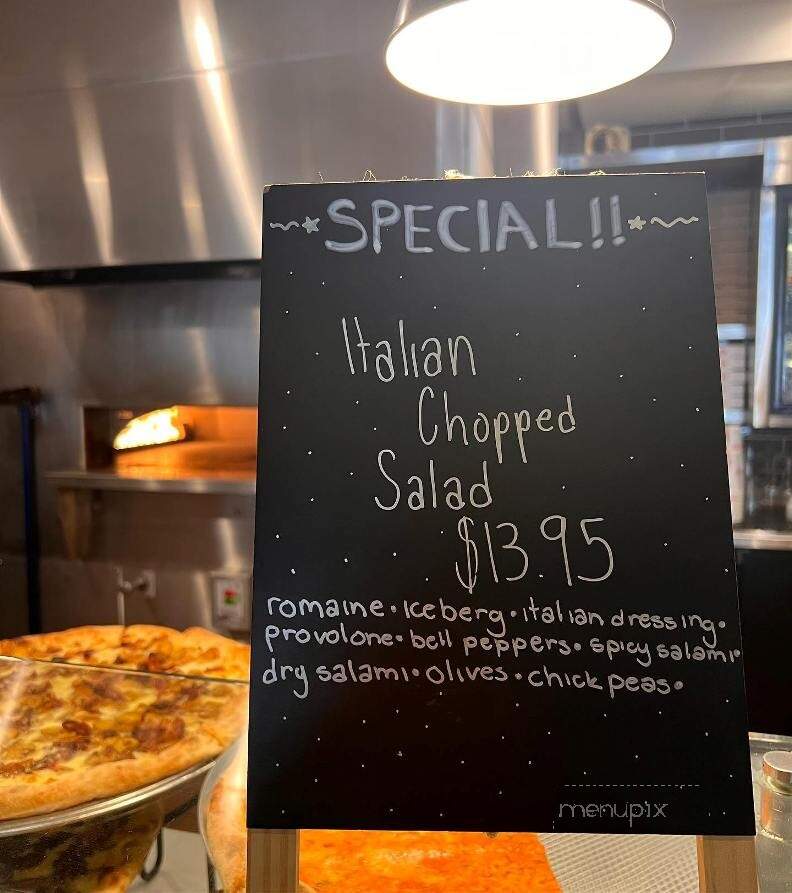 SPECIAL!!
Italian
Chopped
Salad
$13.95
romaine • iceberg • italian dressing •
provolone • bell peppers • spicy salami •
dry salami • olives • chick peas •
menupix